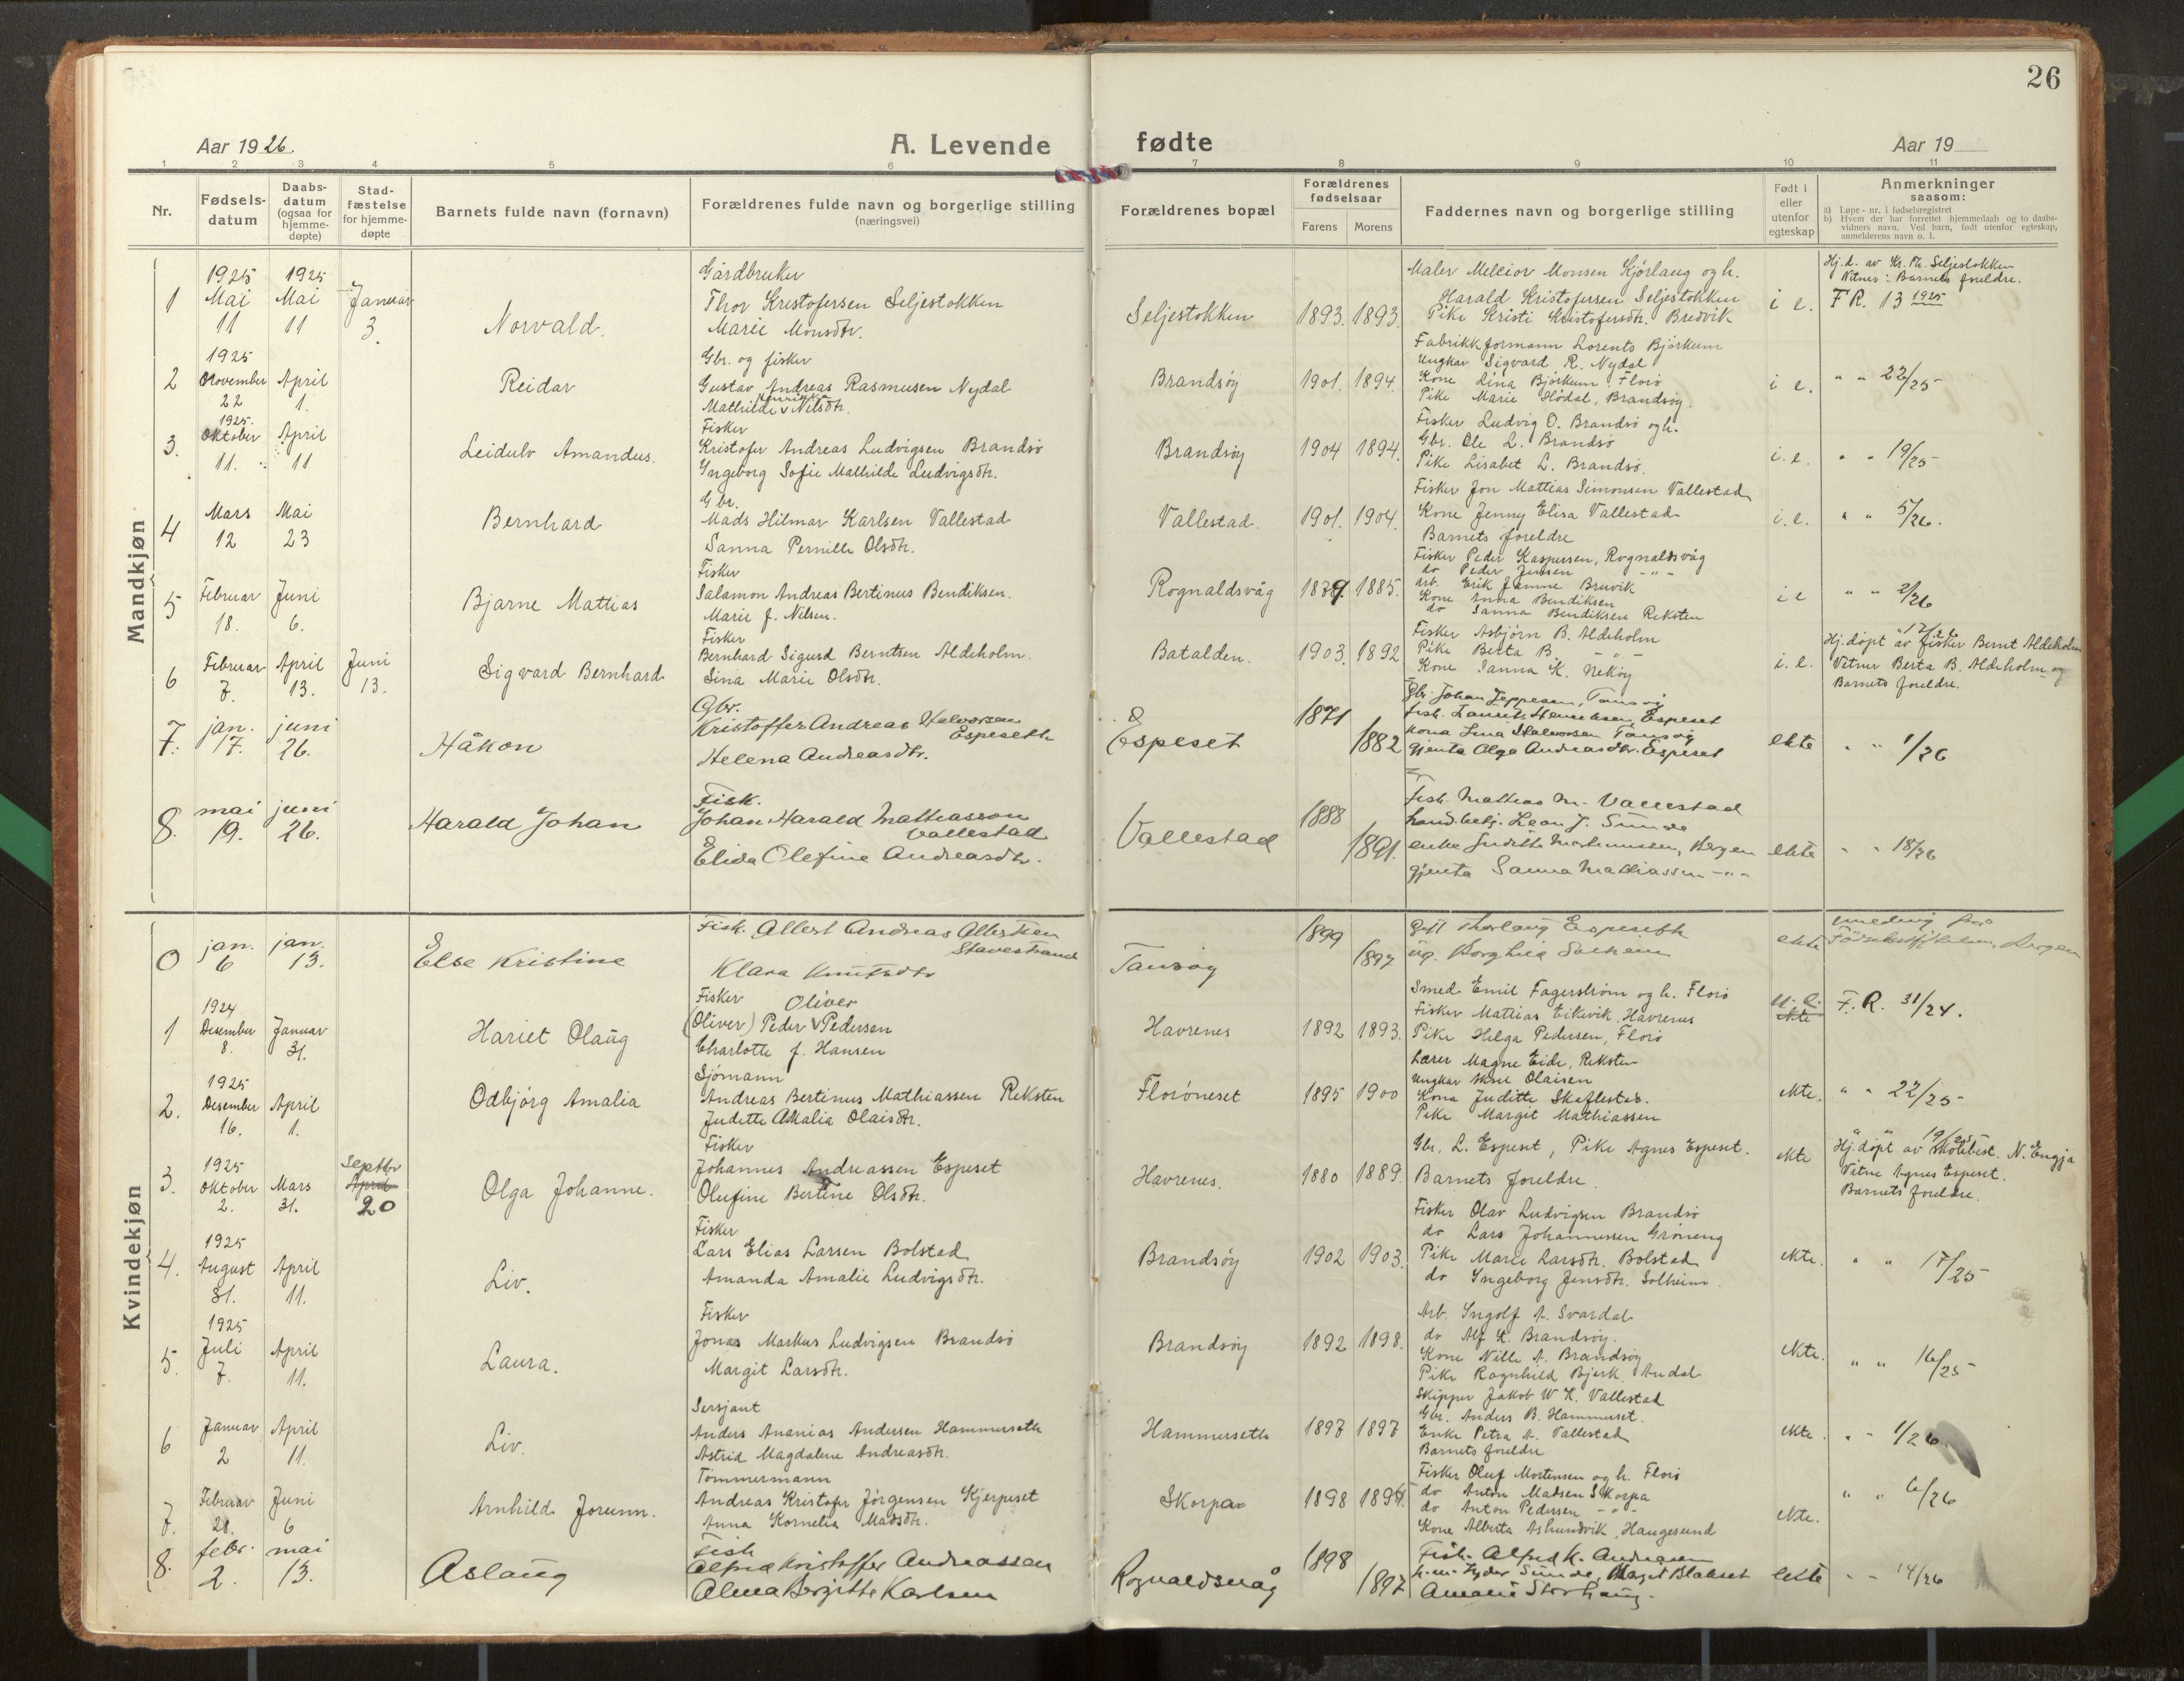 26
Aar 1926.
A. Levende fødte
Aar 19
1 2 3 4 5 6 7 8 9 10 11
Nr.
Fødsels-datum
Daabs-datum (ogsaa for hjemme-døpte)
Stad-fæstelse for hjemme-døpte
Barnets fulde navn (fornavn)
Forældrenes fulde navn og borgerlige stilling
(næringsvei)
Forældrenes bopæl
Forældrenes fødselsaar
Farens Morens
Faddernes navn og borgerlige stilling
Født i eller utenfor egteskap
Anmerkninger
saasom:
a) Løpe-nr. i fødselsregistret
b) Hvem der har forrettet hjemmedaab og to daabs-
vidners navn. Ved barn, født utenfor egteskap,
anmelderens navn o. l.
Mandkjøn
1
1925 Mai 11
1925 Mai 11
Januar 3.
Norvald.
Gårdbruker
Thor Kristofersen Seljestokken
Marie Monsdtr.
Seljestokken
1893. 1893.
Maler Melcior Monsen Kjørlaug og h.
Harald Kristofersen Seljestokken
Pike Kristi Kristofersdtr. Bredvik
i e.
Hj.d. av Kr. Th. Seljestokken
Vitner: Barnets foreldre.
F R. 13 1925
2
1925 November 22
April 1.
Reidar
Gbr. og fisker
Gustav Andreas Rasmusen Nydal
Henrikka
Mathilde v Nilsdtr.
Brandsøy
1901. 1894.
Fabrikkformann Lorents Bjørkum
Ungkar Sigvard R. Nydal
Kone Lina Bjørkum. Florø
Pike Marie Hødal, Brandsøy.
i e.
" " 22/25
3.
1925. Oktober 11.
April 11
Leidulv Amandus.
Fisker
Kristofer Andreas Ludvigsen Brandsø
Ingeborg Sofie Mathilde Ludvigsdtr.
Brandsøy
1904 1894.
Fisker Ludvig O. Brandsø og h.
Gbr. Ole L. Brandsø
Pike Lisabet L. Brandsø.
i. e.
" " 19/25
4
Mars 12
Mai 23
Bernhard
Gbr.
Mads Hilmar Karlsen Vallestad
Sanna Pernille Olsdtr.
Vallestad.
1901. 1904.
Fisker Jon Mattias Simonsen Vallestad
Kone Jenny Elisa Vallestad
Barnets foreldre
i. e.
" " 5/26.
5
Februar 18.
Juni 6.
Bjarne Mattias
Fisker
Salamon Andreas Bertinus Bendiksen.
Marie f. Nilsen.
Rognaldsvåg
1885.
Fisker Peder Kaspersen, Rognaldsvåg
do Peder Jensen - " -
Arb. Erik Janne Bruvik
Kone Anna Bendiksen
do Sanna Bendiksen Reksten
i e
" " 2/26
6
Februar 7.
April 13.
Juni 13.
Sigvard Bernhard
Fisker
Bernhard Sigurd Berntsen Aldeholm.
Lina Marie Olsdtr.
Batalden.
1903. 1892
Fisker Asbjørn B. Aldeholm
Pike Berta B. - " -
Kone Janna K. Nekøy
i. e.
Hj. døpt av fisker Bernt Aldeholm
Vitner Berta B. Aldeholm og
Barnets foreldre.
7.
jan. 17.
juni 26.
Håkon
Gbr.
Kristoffer Andreas Halvorsen
Espeseth
Helena Andreasdtr.
Espeset
1871
1882
Gbr. Johan Jeppesen, Tansøy
fisk. Laurits Henriksen Espeset
kona Lina Halvorsen Tansøy
gjenta Olga Andreasdtr. Espeset
ekte
" " 1/26
8.
mai 19.
juni 26.
Harald Johan
Fisk.
Johan Harald Mathiasson
Vallestad
Elida Olefine Andreasdtr.
Vallestad
1888
1891.
fisk. Mathias M. Vallestad
hand.betj. Leon J. Sunde
enke Judith Martinussen, Bergen
gjenta Sanna Mathiassen - " -
ekte
" " 18/26
Kvindekjøn
0
jan. 6
jan. 13.
Else Kristine
Fisk. Albert Andreas Albertsen
Stavestrand
Klara Knutsdtr
Tansøy
1899
1897
Gift Thorlaug Espeseth
ug. Borghild Solheim
ekte
Fødselsstiftelsen, Bergen
1
1924 Desember 8.
Januar 31.
Hariet Olaug
Fisker Oliver
(Oliver) Peder v Pedersen
Charlotte f. Hansen
Havrenes
1892 1893.
Smed Emil Fagerstrøm og h. Florø
Fisker Mattias Eikevik, Havrenes
Pike Helga Pedersen, Florø
u. e.
ekte
F. R. 31/24.
2.
1925 Desember 16.
April 1.
Odbjørg Amalia
Sjømann
Andreas Bertinus Mathiassen Reksten
Judette Amalia Olaisdtr.
Florøneset
1895 1900
Lærer Magne Eide, Reksten
Ungkar Arne Olaisen
Kona Juditte Skaflestad.
Pike Margit Mathiassen
ekte.
" " 22/25
3.
1925 Oktober 2.
Mars 31.
Septbr
April
20
Olga Johanne.
Fisker
Johannes Andreassen Espeset
Olufine Bertine Olsdtr.
Havrenes.
1880 1889.
Gbr. L. Espeset, Pike Agnes Espeset.
Barnets foreldre.
ekte
19/25
Hj. døpt av skolebest. N. Engja
Vitne Agnes Espeset.
Barnets foreldre.
4.
1925 August 31.
April 11.
Liv.
Fisker
Lars Elias Larsen Bolstad
Amanda Amalie Ludvigsdtr.
Brandsøy
1902 1903.
Fisker Olav Ludvigsen Brandsø
do Lars Johannessen Grøneng
Pike Marie Larsdtr. Bolstad
do Ingeborg Jensdtr. Solheim.
ekte.
" " 17/25
5.
1925 Juli 7.
April 11.
Laura.
Fisker
Jonas Markus Ludvigsen Brandsø
Margit Larsdtr.
Brandsøy
1892 1898.
Arb. Ingolf A. Svardal
do Alf K. Brandsøy.
Kone Nille A. Brandsøy
Pike Ragnhild Bjerk. Andal
ekte.
" " 16/25
6
Januar 2
April 11.
Liv.
Sersjant
Anders Ananias Andersen Hammerseth
Astrid Magdalene Andreasdtr.
Hammerseth
1897 1897
Skipper Jakob W K. Vallestad
Gbr. Anders B. Hammerset.
Enke Petra A. Vallestad
Barnets foreldre
ekte.
" " 1/26.
7.
Februar 21.
Juni 6
Arnhild Jorunn.
Tømmermann
Andreas Kristofer Jørgensen Kjerpeset
Anna Kornelia Madsdtr.
Skorpa
1898
Fisker Oluf Mortensen og h. Florø
do Anton Madsen Skorpa
do Anton Pedersen - " -
Kone Alberta Ashundvik, Haugesund
ekte.
" " 6/26
8.
febr. 2.
mai 13.
Aslaug
Fisk
Alfred Kristoffer Andreassen
Alma Bergitte Karlsen
Rognaldsvåg
1898
1897
Fisk. Alfred K. Andreasen
Sunde, Magst Blakset
Amalie Storhaug.
ekte
" " 14/26